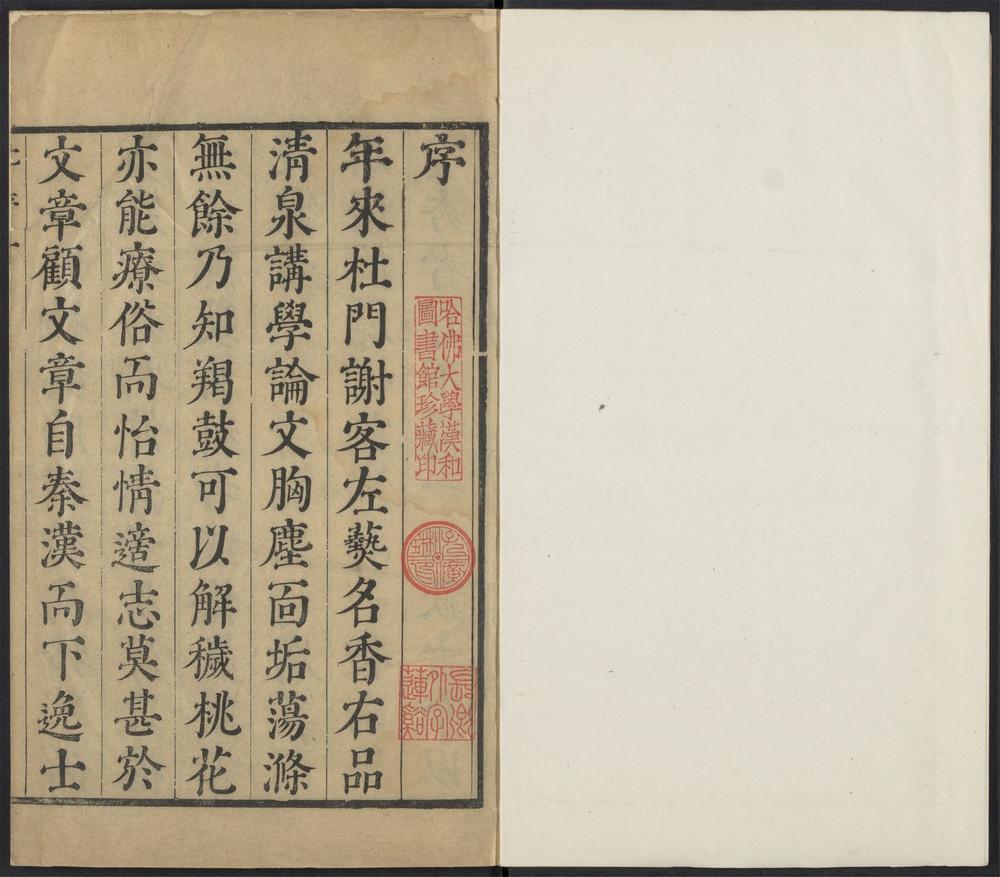 序
年來杜門謝客左爇名香右品
清泉講學論文胸塵面垢蕩滌
無餘乃知羯鼓可以解穢桃花
亦能療俗而怡情適志莫甚於
文章顧文章自秦漢而下逸士
哈佛大學漢和
圖書館珍藏印